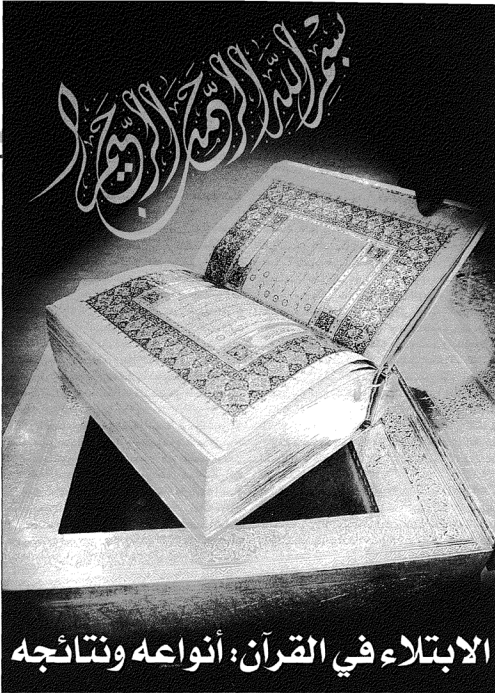 بسم الله الرحمن الرحيم
الابتلاء في القرآن: أنواعه ونتائجه